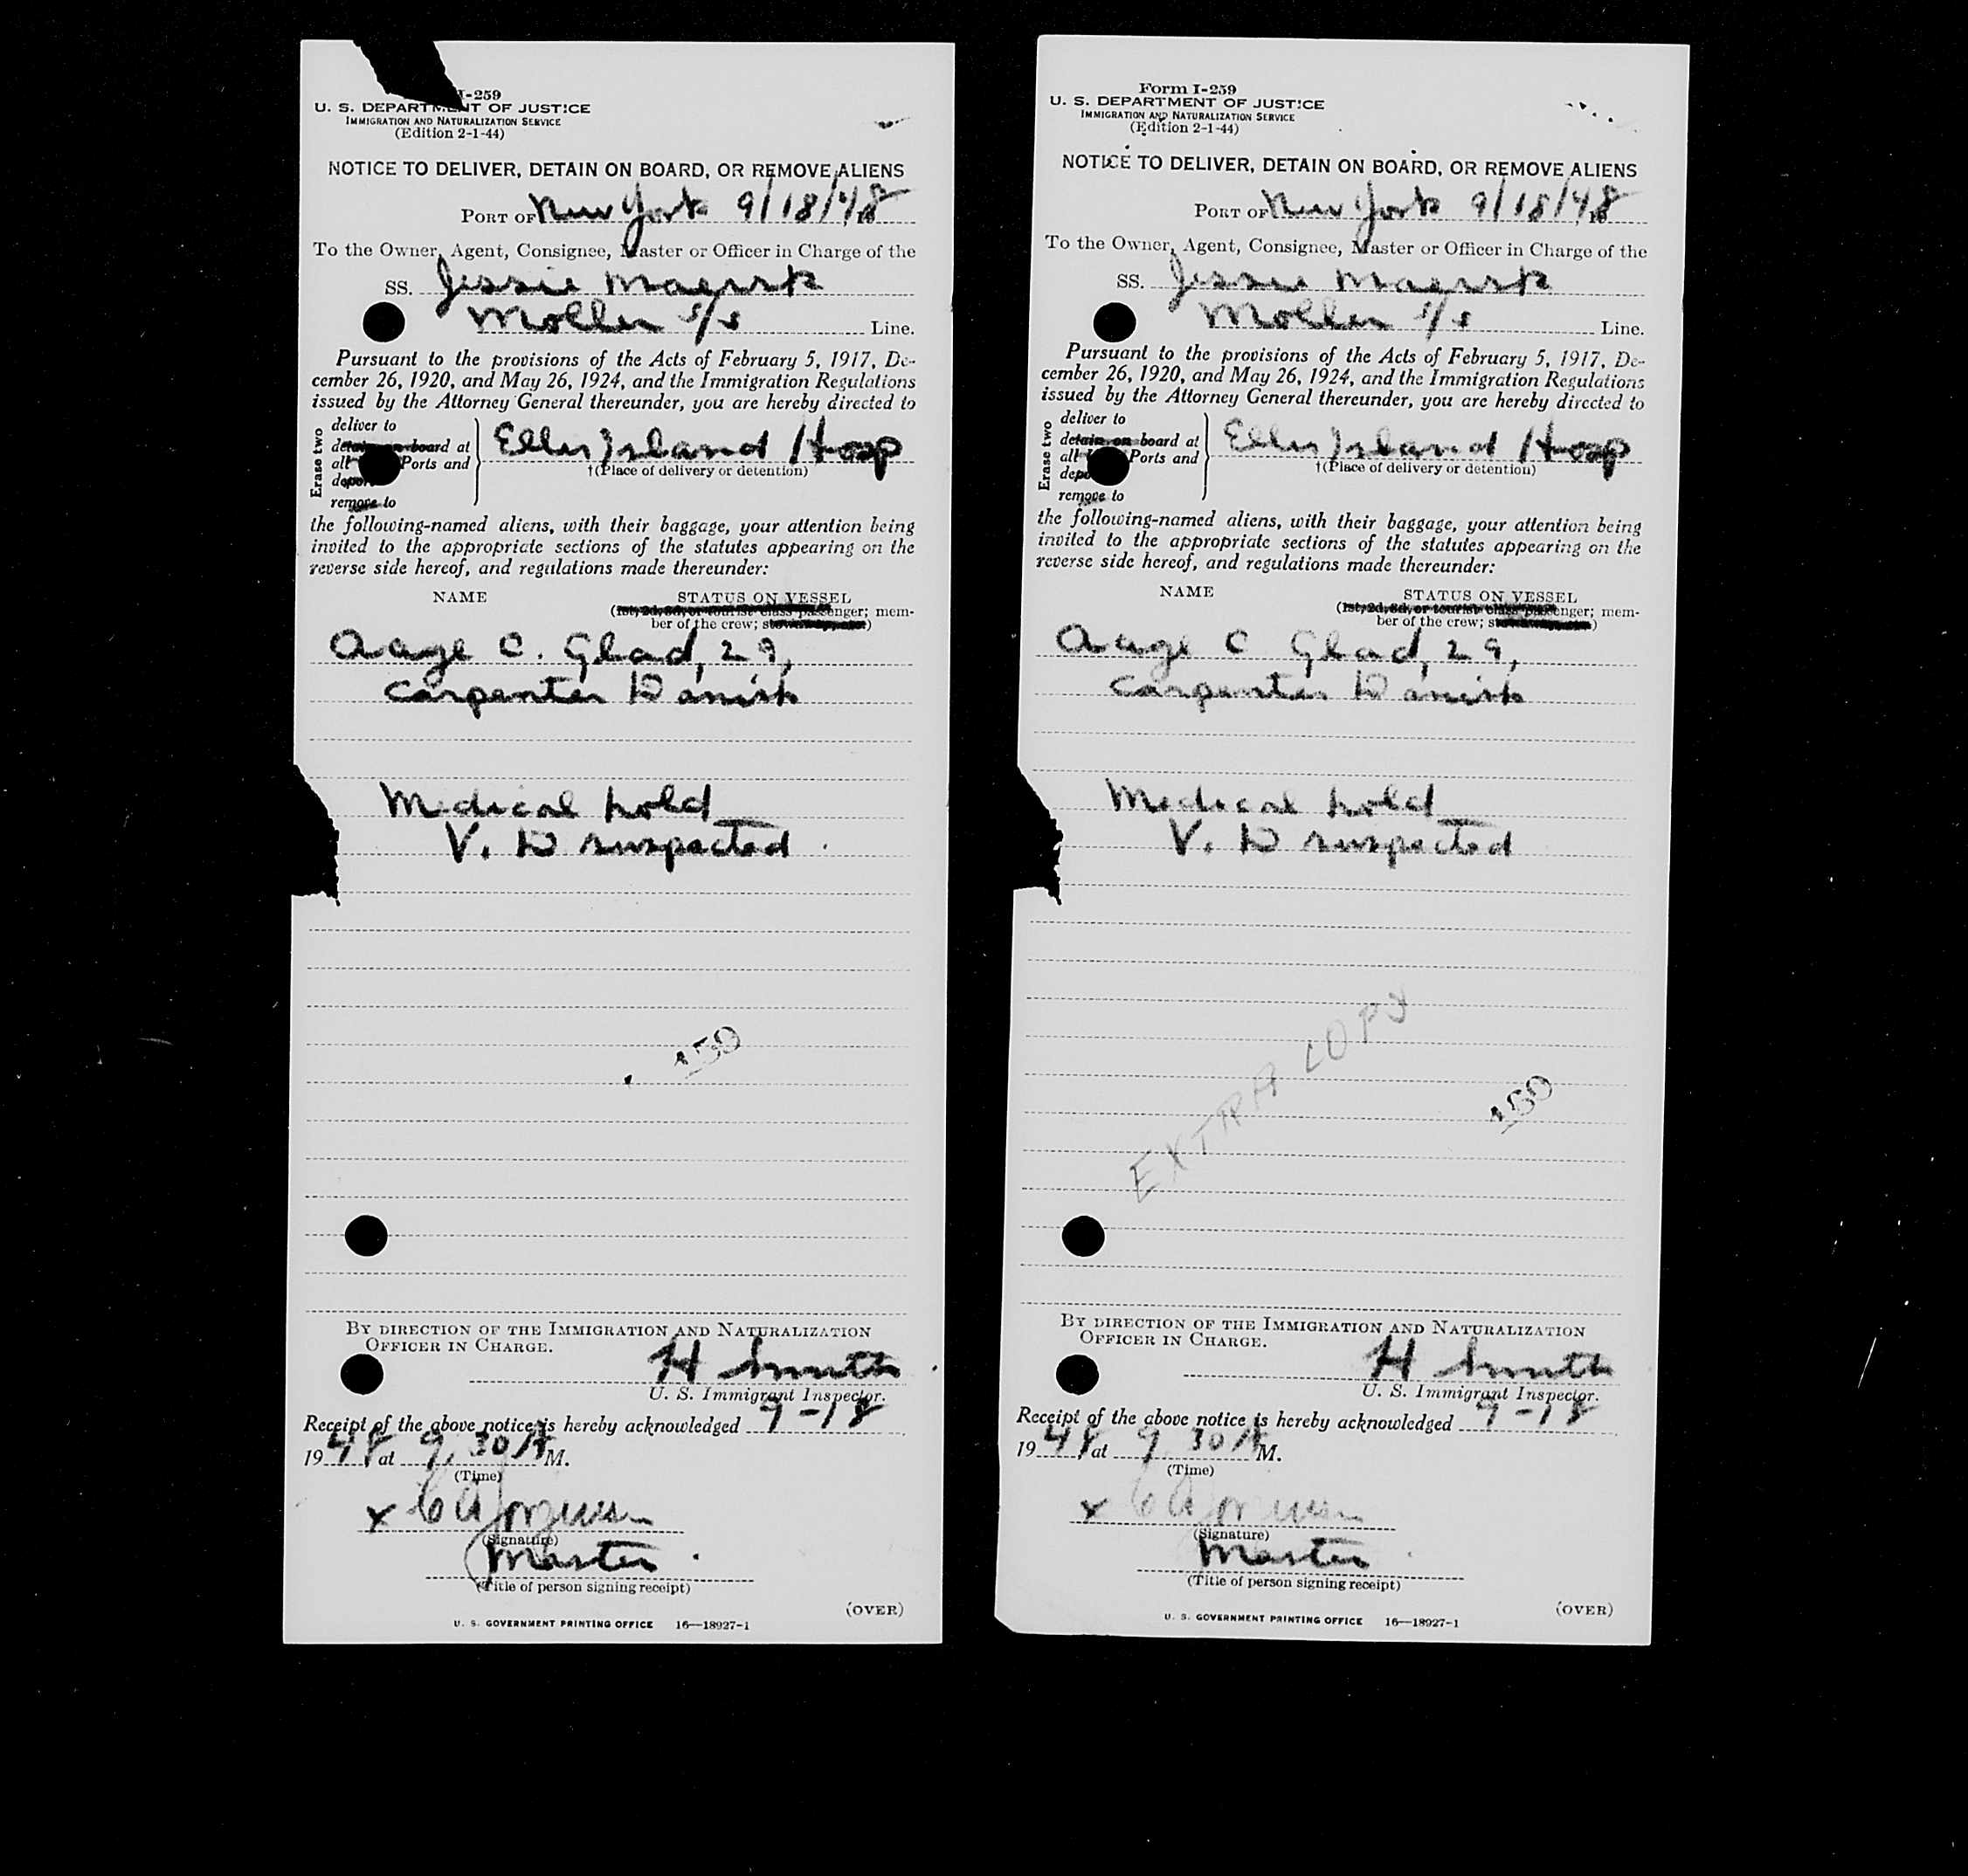 I-259
U. S. DEPARTMENT OF JUSTICE
IMMIGRATION AND NATURALIZATION SERVICE
(Edition 2-1-44)
NOTICE TO DELIVER, DETAIN ON BOARD, OR REMOVE ALIENS
PORT OF New York 9/18/48
To the Owner, Agent, Consignee, Master or Officer in Charge of the
SS. Jessie Maersk
Moller s/s Line.
Pursuant to the provisions of the Acts of February 5, 1917, De-
cember 26, 1920, and May 26, 1924, and the Immigration Regulations
issued by the Attorney General thereunder, you are hereby directed to
Erase two
deliver to
detain on board at
all Ports and
remove to
Ellis Island Hosp
†(Place of delivery or detention)
the following-named aliens, with their baggage, your attention being
invited to the appropriate sections of the statutes appearing on the
reverse side hereof, and regulations made thereunder:
NAME STATUS ON VESSEL
(1st, 2d, 3d, or tourist class passenger; mem-
ber of the crew;
Aage C. Glad, 29,
Carpenter Danish
Medical hold
V. D suspected
BY DIRECTION OF THE IMMIGRATION AND NATURALIZATION
OFFICER IN CHARGE.
H Smith
U. S. Immigrant Inspector.
Receipt of the above notice is hereby acknowledged 9-18
1948 at 9.30 A M.
(Time)
x
(Signature)
Master
(Title of person signing receipt)
(OVER)
U. S. GOVERNMENT PRINTING OFFICE 16—18927-1
Form I-259
U. S. DEPARTMENT OF JUSTICE
IMMIGRATION AND NATURALIZATION SERVICE
(Edition 2-1-44)
NOTICE TO DELIVER, DETAIN ON BOARD, OR REMOVE ALIENS
PORT OF New York 9/18/48
To the Owner, Agent, Consignee, Master or Officer in Charge of the
SS. Jessie Maersk
Moller s/s Line.
Pursuant to the provisions of the Acts of February 5, 1917, De-
cember 26, 1920, and May 26, 1924, and the Immigration Regulations
issued by the Attorney General thereunder, you are hereby directed to
Erase two
deliver to
detain on board at
all Ports and
remove to
Ellis Island Hosp
†(Place of delivery or detention)
the following-named aliens, with their baggage, your attention being
invited to the appropriate sections of the statutes appearing on the
reverse side hereof, and regulations made thereunder:
NAME STATUS ON VESSEL
(1st, 2d, 3d, or tourist class passenger; mem-
ber of the crew;
Aage C Glad, 29,
Carpenter Danish
Medical hold
V. D suspected
EXTRA COPY
BY DIRECTION OF THE IMMIGRATION AND NATURALIZATION
OFFICER IN CHARGE.
H Smith
U. S. Immigrant Inspector.
Receipt of the above notice is hereby acknowledged 9-18
1948 at 9 30 A M.
(Time)
x
(Signature)
Master
(Title of person signing receipt)
(OVER)
U. S. GOVERNMENT PRINTING OFFICE 16—18927-1